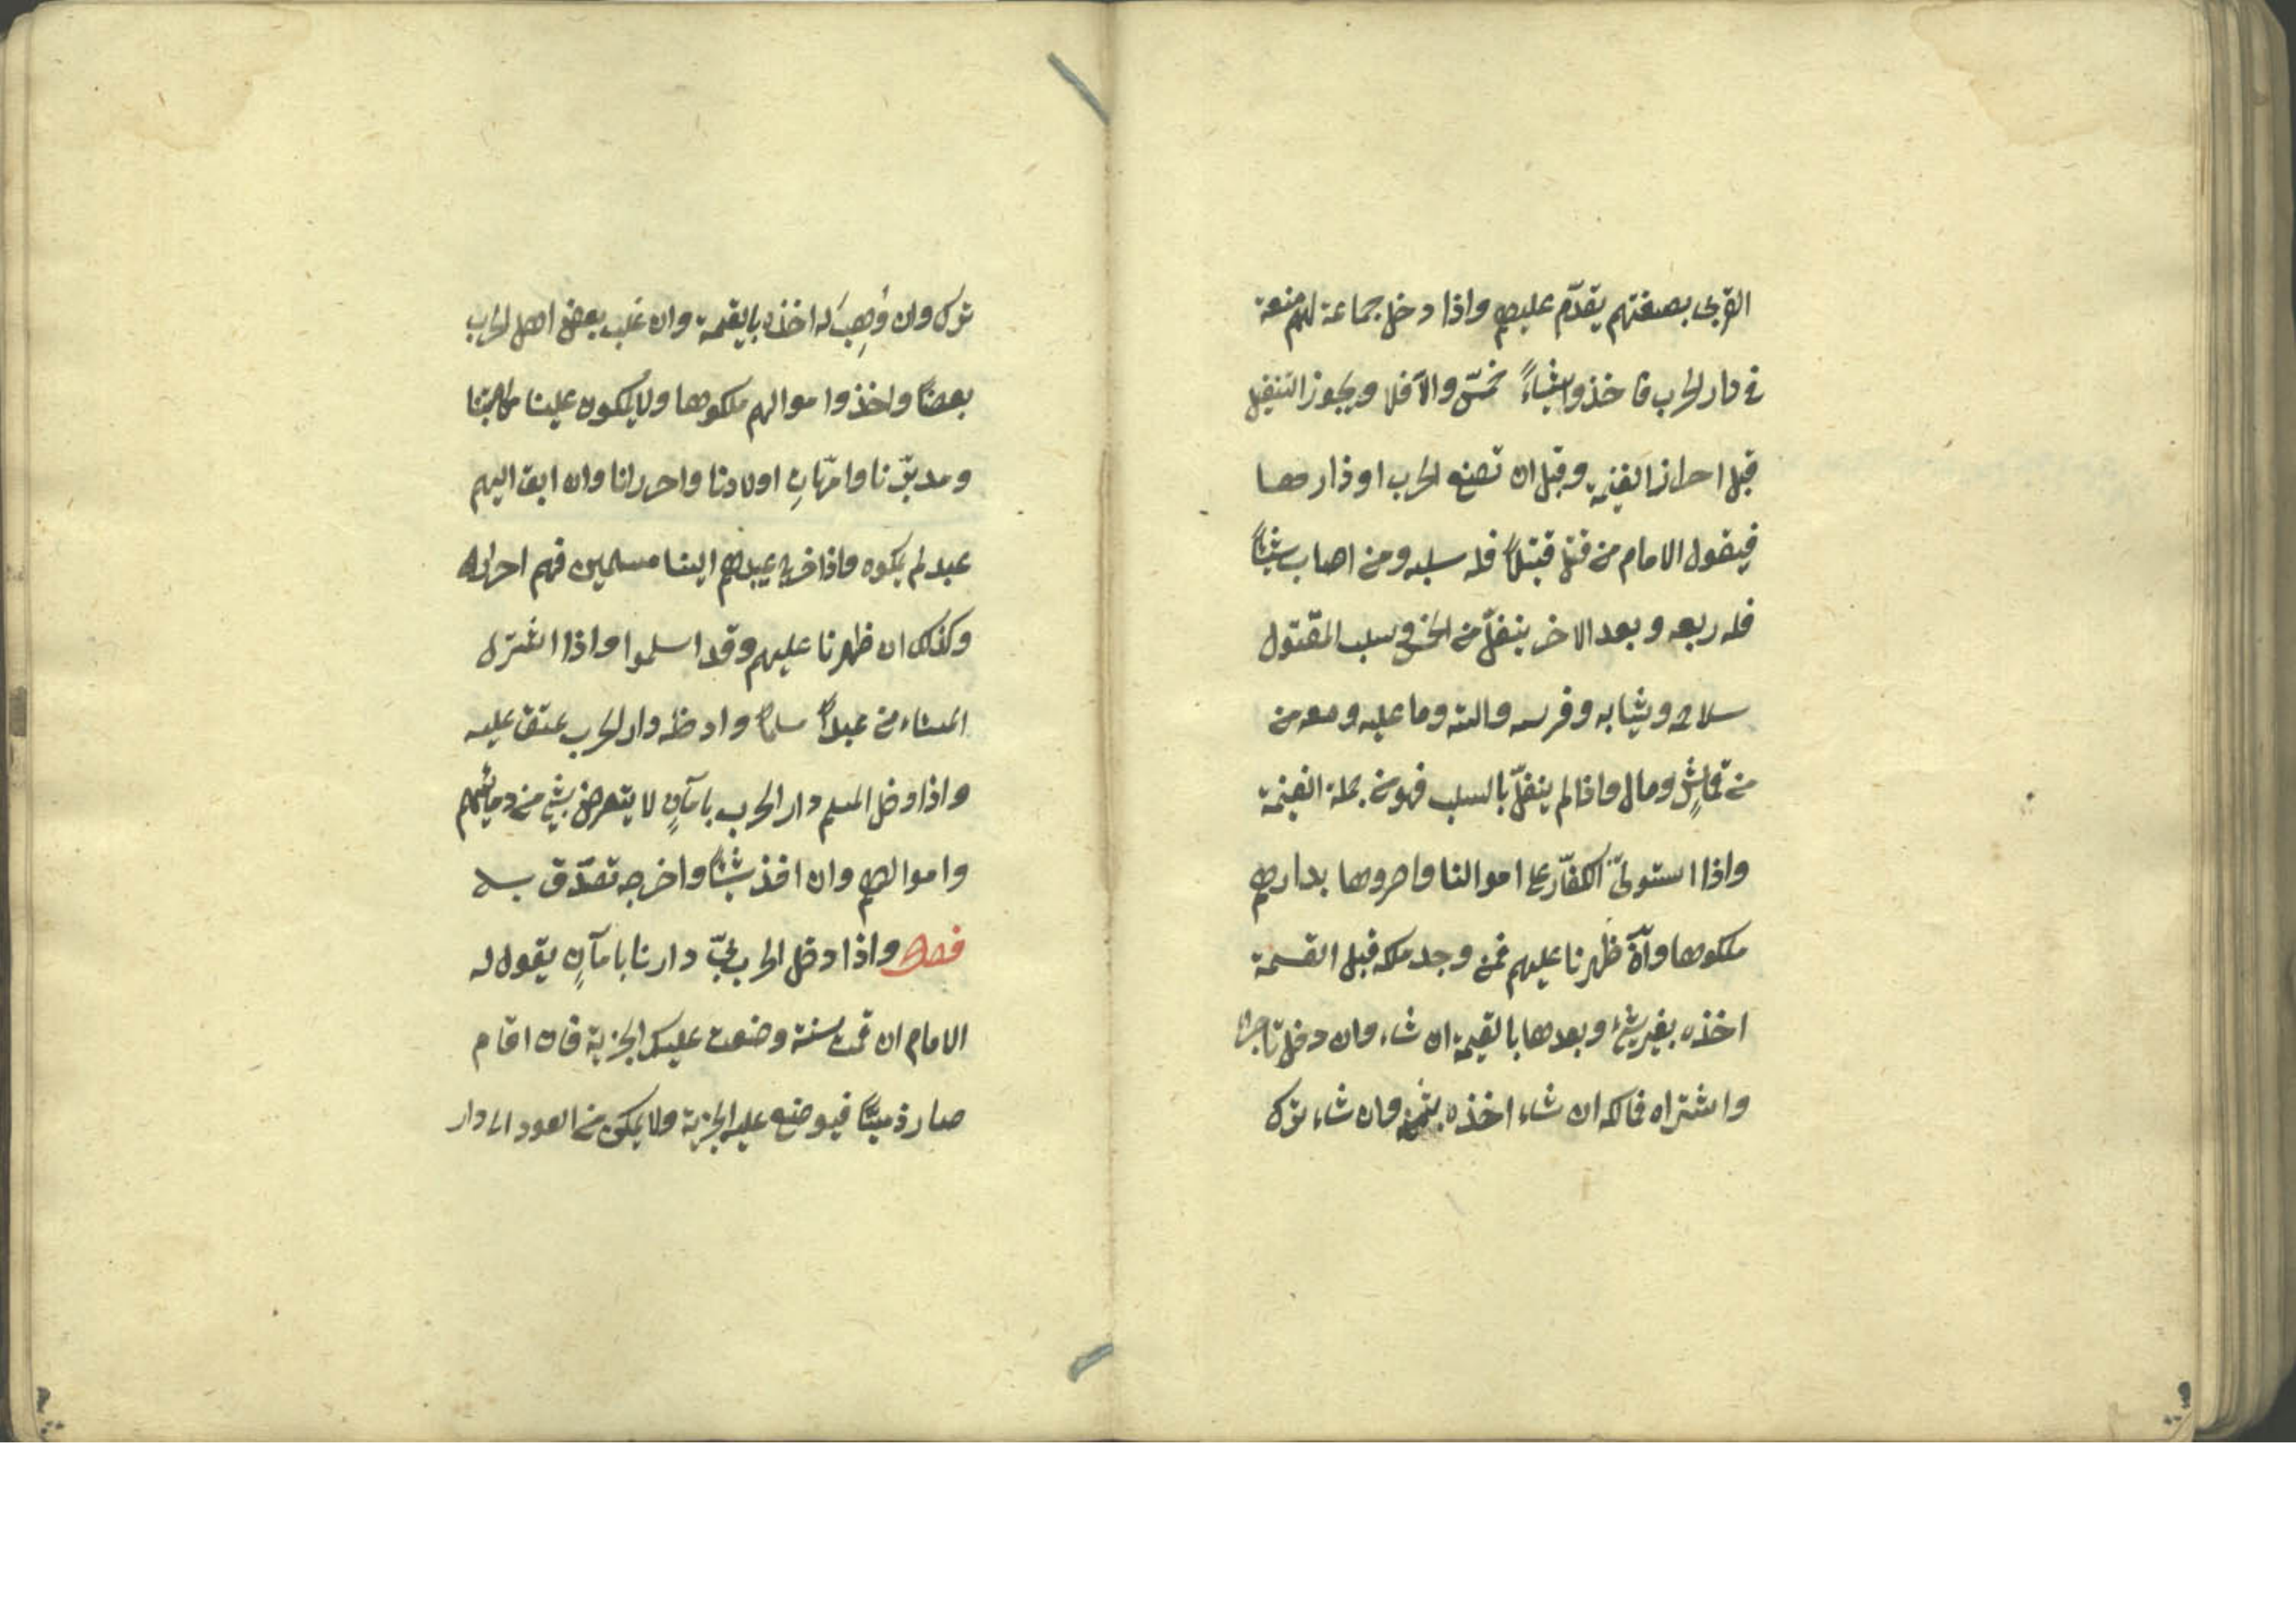 القربى بصفتهم يقدّم عليهم واذا دخل جماعة لهم منعة
في دار الحرب فاخذوا شيئاءً خمّس والّا فلا ويجوز التنفيل
قبل احراز الغنيمة وقبل ان تضع الحرب اوذارها
فيقول الامام من قتل قتيلاً فله سلبه ومن اصاب شيئاً
فله ربعه وبعد الاخر ينفلّ من الخمس وسلب المقتول
سلاحه وثيابه وفرسه والته وما عليه ومعه من
من قماشٍ ومال واذا لم ينفلّ بالسلب فهو من جملة الغنيمة
واذا استولىّ الكفّار على اموالنا واحروها بدارهم
ملكوها وآن ظهرنا عليهم فمن وجد ملكه قبل القسمة
اخذه بغير شئ وبعدها بالقيمة ان شاء وان دخل تاجرا
واشتراه فمالكه ان شاء اخذه بثمنه وان شاء ترك
ترك وان وُهِبَ له اخذه بالقيمة وان غلب بعض اهل الحرب
بعضاً واخذوا موالهم ملكوها ولا يملكون علينا مكاتبتنا
ومدبّرنا وامّهاتِ اولادنا واحررانا وان ابق اليهم
عبد لم يملكوه واذا خرج عبيدهم الينا مسلمين فهم احرار
وكذلك ان ظهرنا عليهم وقد اسلموا واذا اشترى
المستاءمن عبداً مسلما وادخله دار الحرب عتق عليه
واذا دخل المسلم دار الحرب بامآنٍ لا يتعرض بشئ من دمائهم
واموالهم وان اخذ شيئاً واخرجه تصدّق به
فصل واذا دخل الحربيّ دارنا بامآنٍ يقول له
الامام ان قمت سنة وضعت عليك الجزية فان اقام
صار ذميّاً فيوضع عليه الجزية ولا يمكن من العود الى دار